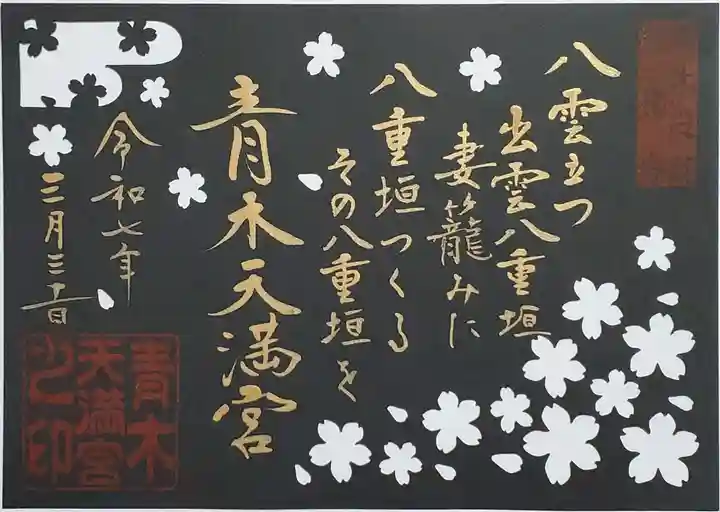 八雲立つ
出雲八重垣
妻籠みに
八重垣つくる
その八重垣を
青木天満宮
令和七年
三月三十日
青木
天満宮
之印